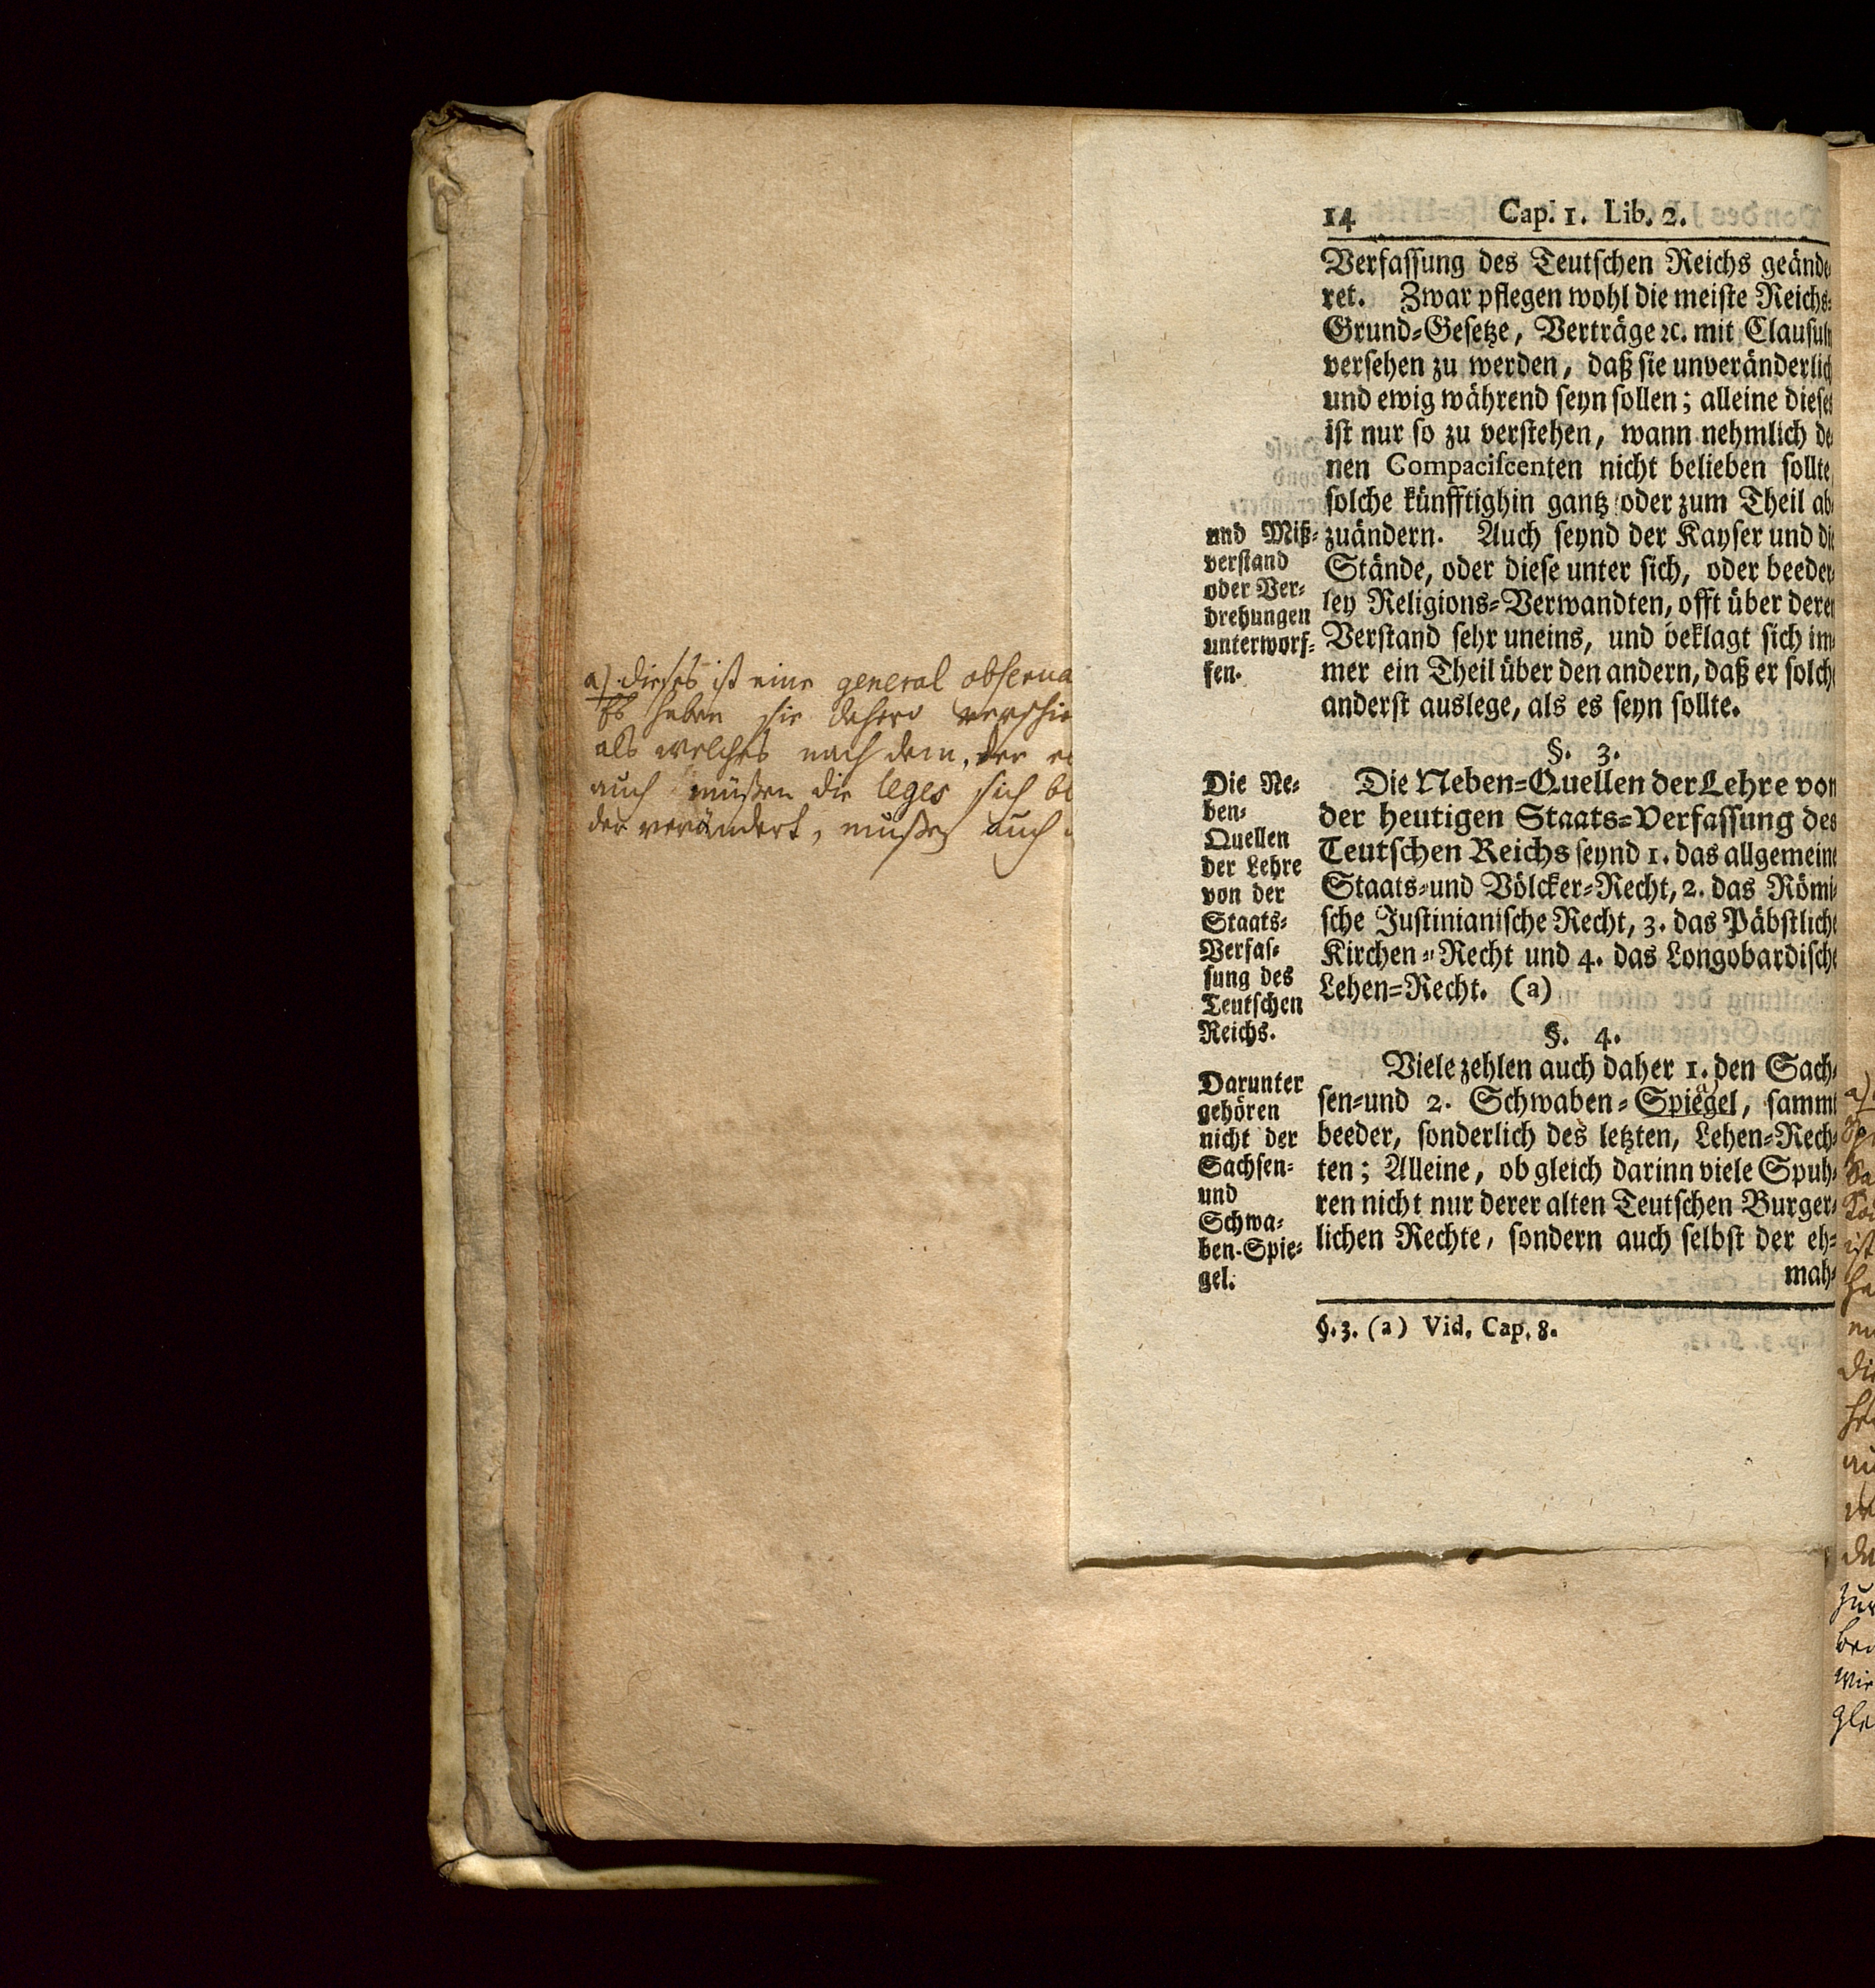 14 Cap. 1. Lib. 2.
Verfassung des Teutschen Reichs geände
ret. Zwar pflegen wohl die meiste Reichs-
Grund-Gesetze, Verträge ꝛc. mit Clausuln
versehen zu werden, daß sie unveränderlich
und ewig während seyn sollen; alleine dieses
ist nur so zu verstehen, wann nehmlich de
nen Compaciscenten nicht belieben sollte
solche künfftighin gantz oder zum Theil ab
zuändern. Auch seynd der Kayser und die
Stände, oder diese unter sich, oder beeder
ley Religions-Verwandten, offt über deren
Verstand sehr uneins, und beklagt sich im
mer ein Theil über den andern, daß er solche
anderst auslege, als es seyn sollte.
und Miß-
verstand
oder Ver-
drehungen
unterworf-
fen.
§. 3.
Die Neben-Quellen der Lehre von
der heutigen Staats-Verfassung des
Teutschen Reichs seynd 1. das allgemeine
Staats- und Völcker-Recht, 2. das Römi-
sche Justinianische Recht, 3. das Päbstliche
Kirchen-Recht und 4. das Longobardische
Lehen-Recht. (a)
Die Ne-
ben-
Quellen
der Lehre
von der
Staats-
Verfas-
sung des
Teutschen
Reichs.
§. 4.
Viele zehlen auch daher 1. den Sach-
sen- und 2. Schwaben-Spiegel, sammt
beeder, sonderlich des letzten, Lehen-Rech-
ten; Alleine, ob gleich darinn viele Spuh-
ren nicht nur derer alten Teutschen Burger-
lichen Rechte, sondern auch selbst der eh-
mah-
Darunter
gehören
nicht der
Sachsen-
und
Schwa-
ben-Spie-
gel.
§. 3. (a) Vid. Cap. 8.
a) dieses ist eine general obserua
Es haben sie dahero verschie
als welches nach dem, der
auch müßen die leges sich
der verändert, müßen auch